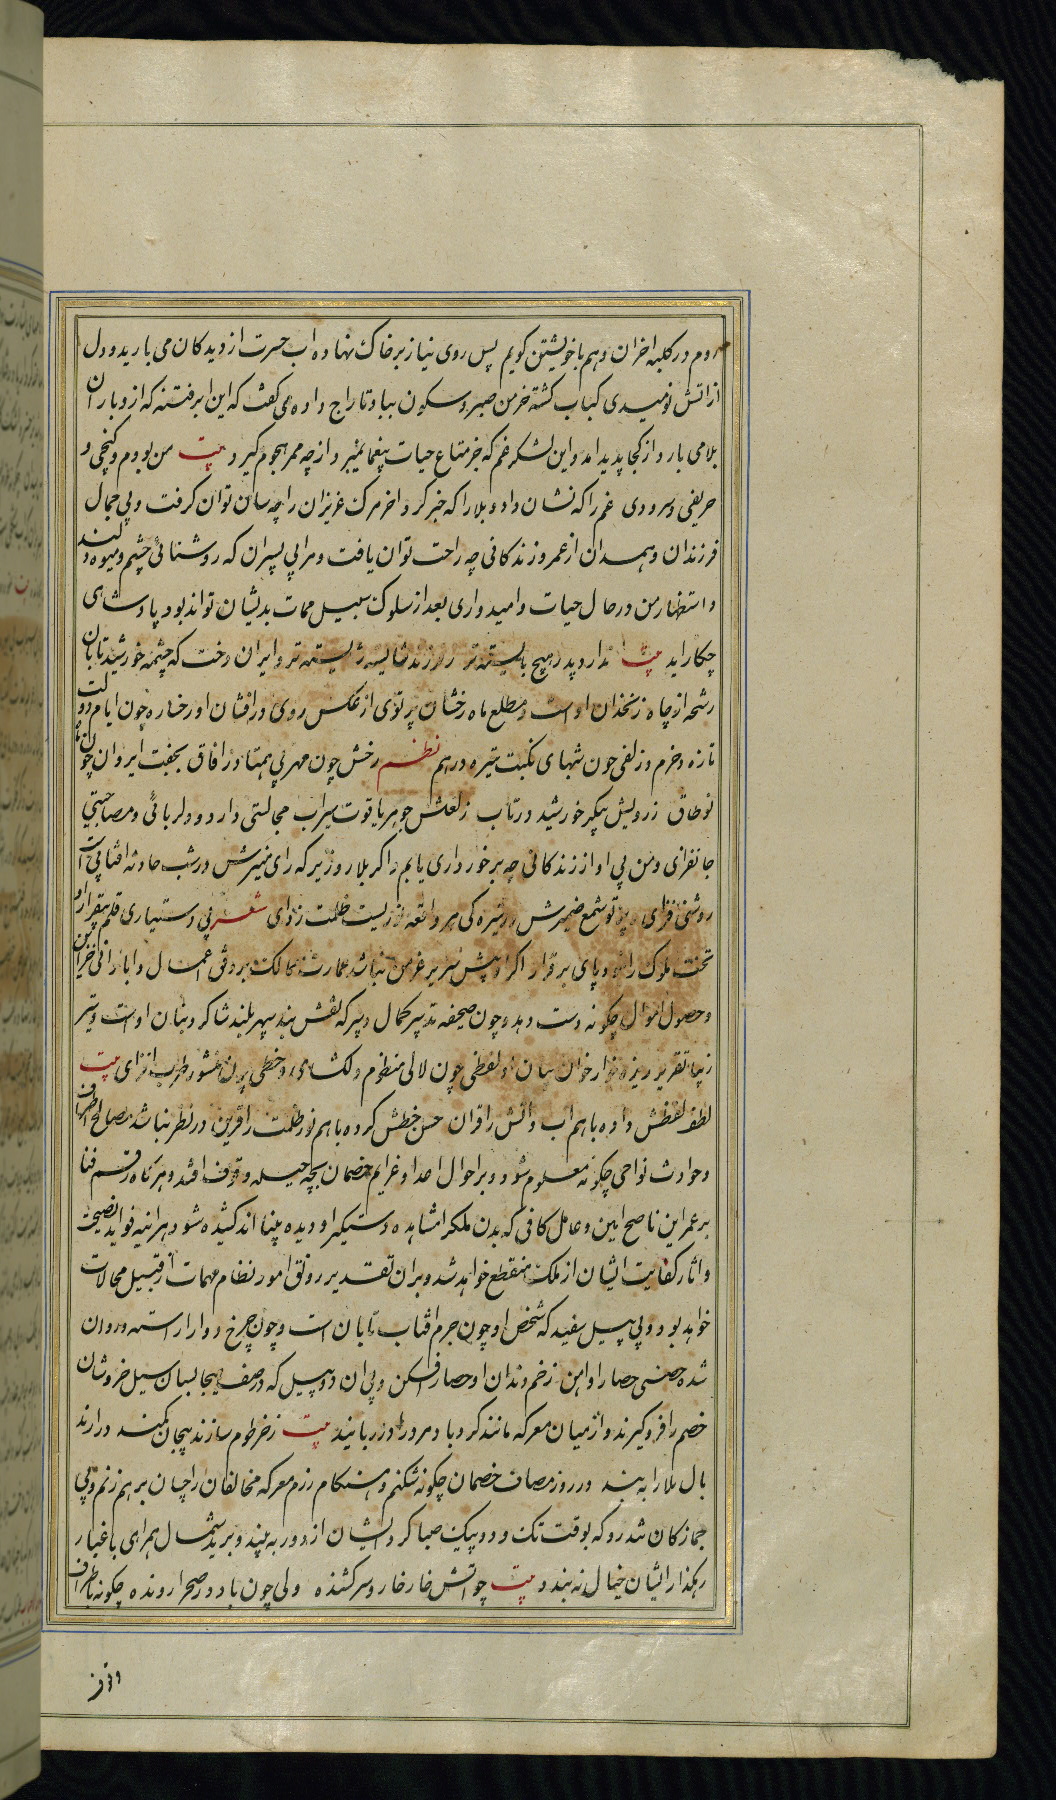 روم در کلبه احزان و هم با خویشتن کویم پس روی نیاز بر خاک نهاده اب حسرت از دیدکان می بارید و دل
از اتش نومیدی کباب کشته خرمن صبر و سکون بباد تاراج داده می کفت که این ابر فتنه که از و باران
بلا می بارد از کجا پدید امد و این لشکر غم که جز متاع حیات بیغما نمیبرد از چه ممر هجوم کیرد بیت من بودم و کنجی و
حریفی و سرودی غم را که نشان داد و بلا را که خبر کرد اخر مرک عزیزان را چه سان توان کرفت و بی جمال
فرزندان و همدمان از عمر و زندکانی چه راحت توان یافت و مرا بی پسران که روشنائی چشم و میوه دلند
و استظهار من در حال حیات و امیدواری بعد از سلوک سبیل ممات بدیشان تواند بود پادشاهی
چکار اید بیت ندارد پدر هیچ بایسته تر ز فرزند شایسته شایسته تر و ایران دخت که چشمه خورشید تابان
رشحه از چاه زنخدان اوست و مطلع ماه رخشان پرتوی از عکس روی درافشان او رخساره چون ایام دولت
تازه و خرم و زلفی چون شبهای نکبت تیره و درهم نظم رخش چون مهر بی همتا در افاق بجفت ابروان چون ماه
نو طاق ز رویش پیکر خورشید در تاب ز لعلش جوهر یاقوت سیراب مجالستی دارد و دلربائی و مصاحبتی
جانفزای و من بی او از زندکانی چه برخورداری یابم و اکر بلار وزیر که رای منیرش در شب حادثه افتابی است
روشنی فزای و پرتو شمع ضمیرش در تیره کی هر واقعه نوریست ظلمت زدای شعر بی دستیاری قلم بیقرار او
تخت ملوک را نبود پای برقرار اکر او پیش سریر عز من نباشد عمارت ممالک بر وفق اعمال و ابادانی خزاین
و حصول اموال چکونه دست دهد و چون صحیفه تدبیر کمال دبیر که نقش بند سپهر بلند شاکرد بنان اوست و تیر
زیبا تقریر ریزه خوار خوان بیان او لفظی چون لالی منظوم دلکشای و خطی چون منشور طرب افزای بیت
لطف لفظش داده با هم اب و اتش را قران حسن خطش کرده با هم نور و ظلمت را قرین در نظر نباشد مصالح اطراف
و حوادث نواحی چکونه معلوم شود و بر احوال اعدا و عزایم خصمان بچه حیله وقوف افتد و هرکاه رقم فنا
بر عمر این ناصح امین و عامل کافی که بدن ملک را مشابه ده دستیکیر او دیده بینا اند کشیده شود هراینه فواید نصیحت
و اثار کفایت ایشان از ملک منقطع خواهد شد و بران تقدیر رونق امور و نظام مهمات از قبیل محالات
خواهد بود و بی پیل سفید که شخص او چون جرم افتاب تابان است و چون چرخ دوار اراسته و روان
شده حصنی حصار او اهن زخم دندان او حصار افکن و بی ان دو پیل که در صف هیجا بسان سیل خروشان
خصم را فرو کیرند و از میان معرکه مانند کردباد مرد را در ربایند بیت ز خرطوم سازند پیچان کمند در ارند
بال یلان را به بند در روز مصاف خصمان چکونه شکنم و هنکام رزم معرکه مخالفان را چسان بر هم زنم و بی
جمازکان تندرو که بوقت تک و دو پیک صبا کرد ایشان از دور نه بیند و برید شمال همرای با غبار
رهکذار ایشان خیال نه بندد بیت چو اتش خار خار و سر کشنده ولی چون باد در صحرا رونده چکونه باطراف
وقوف